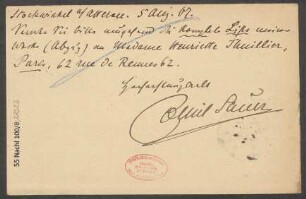 Stockwinkel a/Attersee. 5 Aug. 07.
Senden Sie bitte umgehend die komplete Liste meiner
Werke (Abzüg) an Madame Henriette Thuillier,
Paris, 42 rue de Rennes 62.
Hochachtungsvoll
Emil Sauer
55 Nachl 100/B